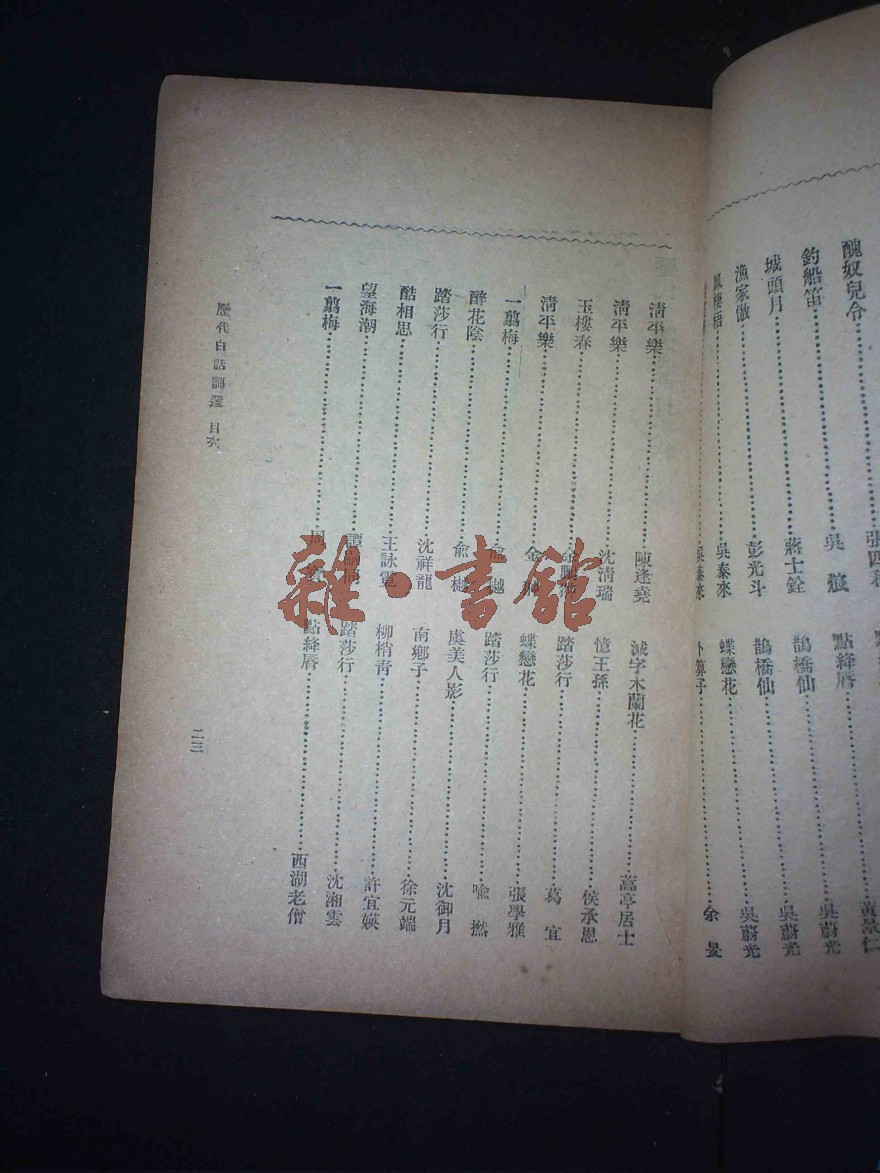 醜奴兒令
釣船笛……吳
城頭月……蔣士銓
漁家傲……彭光斗
鳳棲梧……吳泰來
吳泰來
點絳唇……吳蔚光
鵲橋仙……吳蔚光
鵲橋仙……吳蔚光
蝶戀花
卜算子……余
清平樂……陳逢堯
清平樂……沈清瑞
玉樓春……金
清平樂……金
一翦梅……俞樾
醉花陰……俞樾
踏莎行……沈祥龍
酷相思……王詠霓
望海潮……譚嗣同
一翦梅……周
減字木蘭花……蒿亭居士
憶王孫……侯承恩
踏莎行……葛宜
蝶戀花……張學雅
踏莎行……喻撚
虞美人影……沈御月
南鄉子……徐元端
柳梢青……許宜媖
踏莎行……沈湘雲
點絳唇……西湖老僧
歷代白話詞選 目次
二三
雜·書館